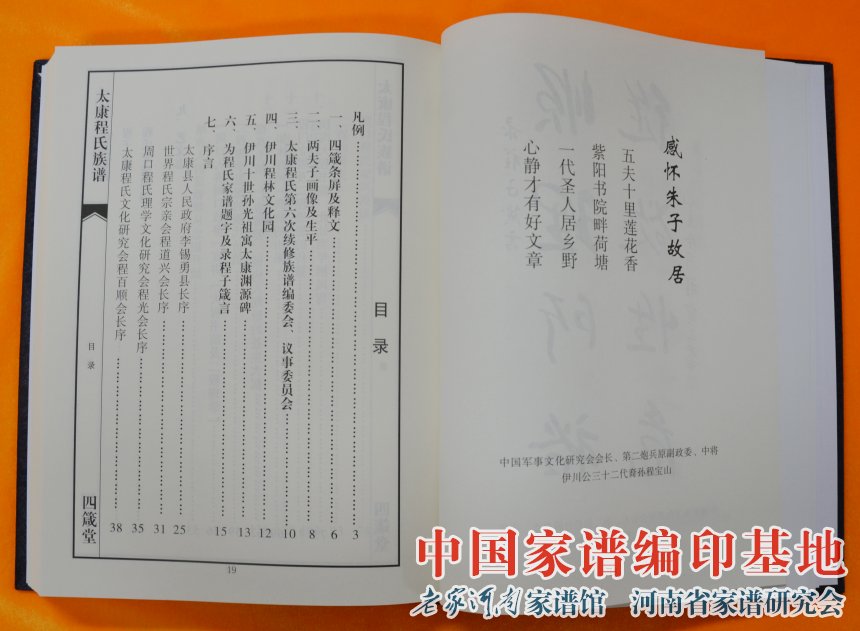 感怀朱子故居
五夫十里莲花香
紫阳书院畔荷塘
一代圣人居乡野
心静才有好文章
中国军事文化研究会会长、第二炮兵原副政委、中将
伊川公三十二代裔孙程宝山
目录
凡例……3
一、四箴条屏及释文……6
二、两夫子画像及生平……8
三、太康程氏第六次续修族谱编委会、议事委员会……10
四、伊川程林文化园……12
五、伊川十世孙光祖寓太康渊源碑……13
六、为程氏家谱题字及录程子箴言……15
七、序言
太康县人民政府李锡勇县长序……25
世界程氏宗亲会程道兴会长序……31
周口程氏理学文化研究会程光会长序……35
太康程氏文化研究会程百顺会长序……38
太康程氏族谱
目录
四箴堂
19
中国家谱编印基地
老家河南家谱馆 河南省家谱研究会